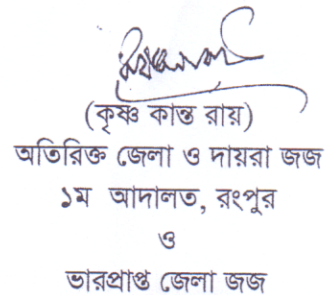 (কৃষ্ণ কান্ত রায়)
অতিরিক্ত জেলা ও দায়রা জজ
১ম আদালত, রংপুর
ও
ভারপ্রাপ্ত জেলা জজ